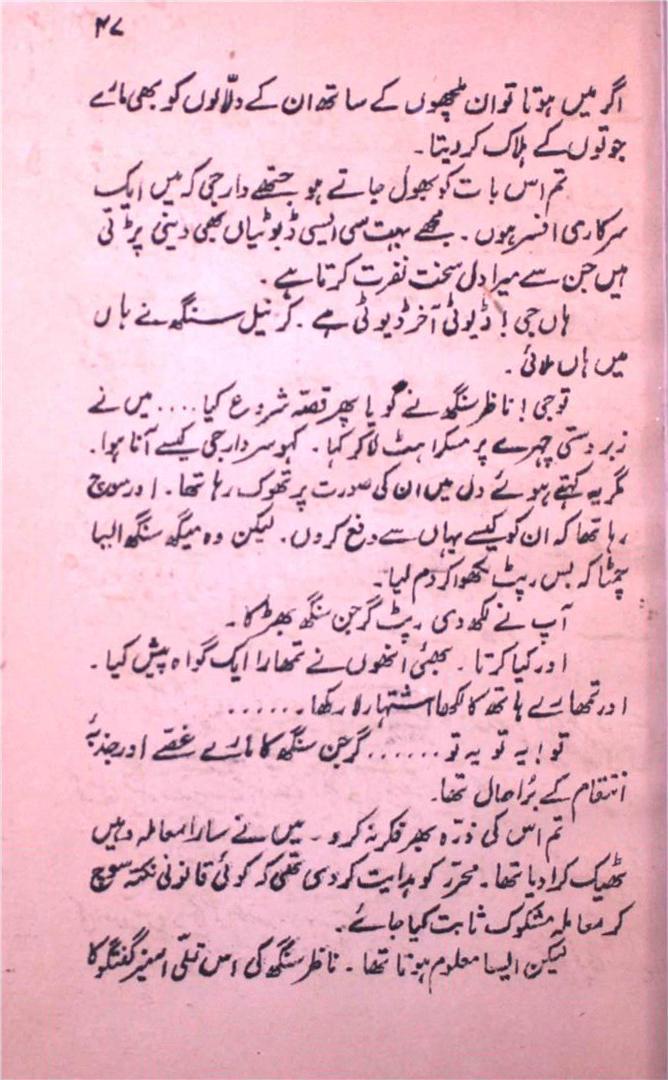 ۴۷
اگر میں ہوتا تو ان ملچھوں کے ساتھ ان کے دلّالوں کو بھی مارے
جوتوں کے ہلاک کر دیتا۔
تم اس بات کو بھول جاتے ہو جتھے دار جی کہ میں ایک
سرکاری افسر ہوں۔ مجھے بہت سی ایسی ڈیوٹیاں بھی دینی پڑتی
ہیں جن سے میرا دل سخت نفرت کرتا ہے۔
ہاں جی! ڈیوٹی آخر ڈیوٹی ہے۔ کرنیل سنگھ نے ہاں
میں ہاں ملائی۔
تو جی! ناظر سنگھ نے گویا پھر قصّہ شروع کیا .... میں نے
زبردستی چہرے پر مسکراہٹ لا کر کہا۔ کہو سردار جی کیسے آنا ہوا۔
مگر یہ کہتے ہوئے دل میں ان کی صورت پر تھوک رہا تھا۔ اور سوچ
رہا تھا کہ ان کو کیسے یہاں سے دفع کروں۔ لیکن وہ میگھ سنگھ ایسا
چمٹا کہ بس رپٹ لکھوا کر دم لیا۔
آپ نے لکھ دی رپٹ گرجن سنگھ بھڑکا۔
اور کیا کرتا۔ بھئی انھوں نے تمھارا ایک گواہ پیش کیا۔
اور تمھارے ہاتھ کا لکھا اشتہار لا رکھا۔......
تو! یہ تو یہ تو ...... گرجن سنگھ کا مارے غصّے اور جذبۂ
انتقام کے بُرا حال تھا۔
تم اس کی ذرّہ بھر فکر نہ کرو۔ میں نے سارا معاملہ وہیں
ٹھیک کرا دیا تھا۔ محرّر کو ہدایت کر دی تھی کہ کوئی قانونی نکتہ سوچ
کر معاملہ مشکوک ثابت کیا جائے۔
لیکن ایسا معلوم ہوتا تھا۔ ناظر سنگھ کی اس تسلّی آمیز گفتگو کا